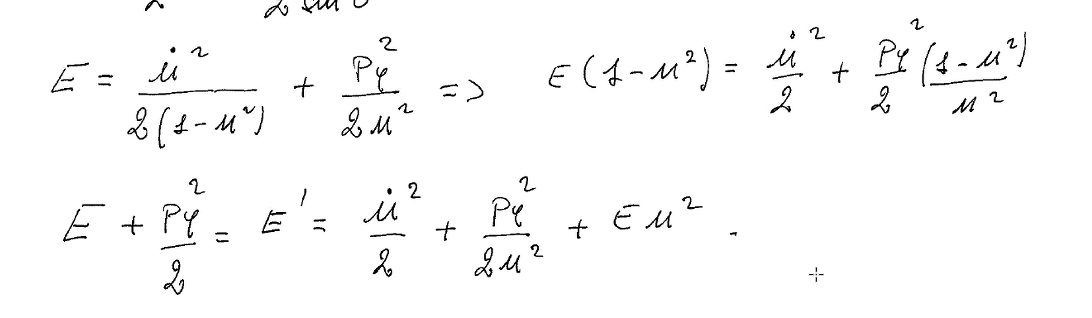 2 2 sin θ
E = u̇² / 2(1-u²) + Pφ² / 2u² => E(1-u²) = u̇²/2 + Pφ²/2 (1-u²)/u²
E + Pφ²/2 = E' = u̇²/2 + Pφ²/2u² + Eu².